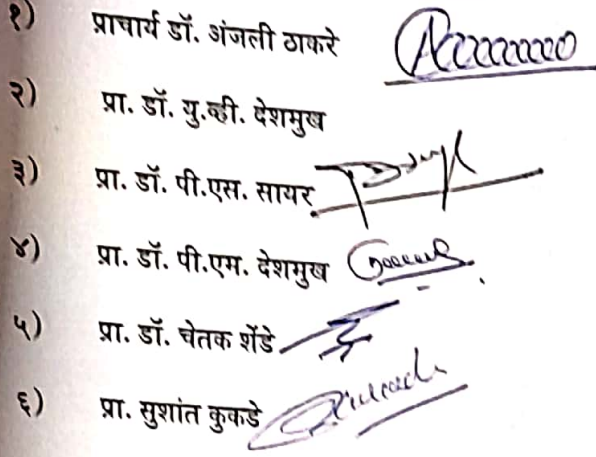 १) प्राचार्य डॉ. अंजली ठाकरे
२) प्रा. डॉ. यु.व्ही. देशमुख
३) प्रा. डॉ. पी.एस. सायर
४) प्रा. डॉ. पी.एम. देशमुख
५) प्रा. डॉ. चेतक शेंडे
६) प्रा. सुशांत कुकडे